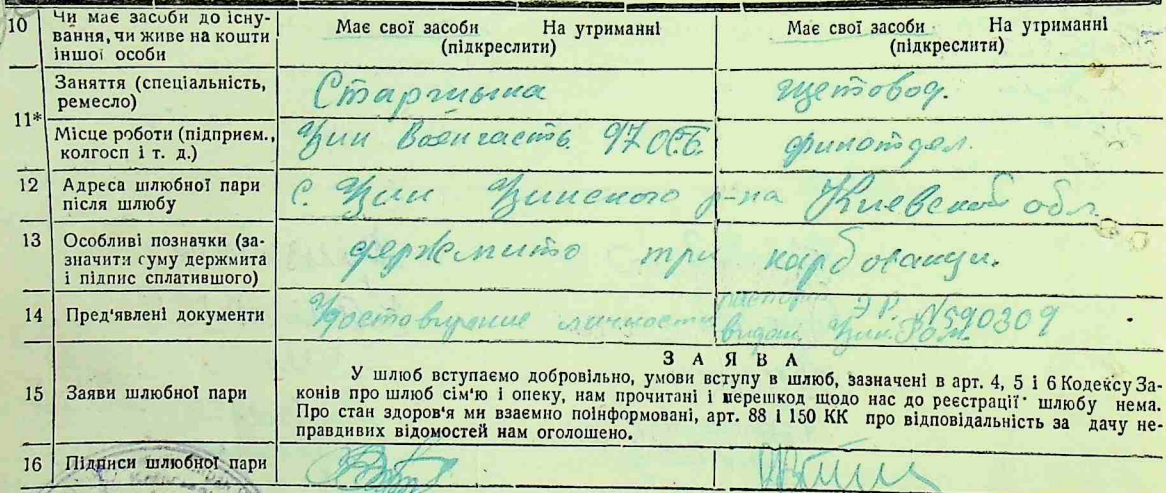 10 Чи має засоби до існу-
вання, чи живе на кошти
іншої особи
Має свої засоби На утриманні
(підкреслити)
Має свої засоби На утриманні
(підкреслити)
11*
Заняття (спеціальність,
ремесло)
Старшына
щетовод.
Місце роботи (підприєм.,
колгосп і т. д.)
Военчасть 97
финотдел.
12 Адреса шлюбної пари
після шлюбу
с. р-на Киевской обл
13 Особливі позначки (за-
значити суму держмита
і підпис сплатившого)
держмито три карбованци.
14 Пред'явлені документи
личности паспорт
№590309
15 Заяви шлюбної пари
ЗАЯВА
У шлюб вступаємо добровільно, умови вступу в шлюб, зазначені в арт. 4, 5 і 6 Кодексу За-
конів про шлюб сім'ю і опеку, нам прочитані і перешкод щодо нас до реєстрації шлюбу нема.
Про стан здоров'я ми взаємно поінформовані, арт. 88 і 150 КК про відповідальність за дачу не-
правдивих відомостей нам оголошено.
16 Підписи шлюбної пари